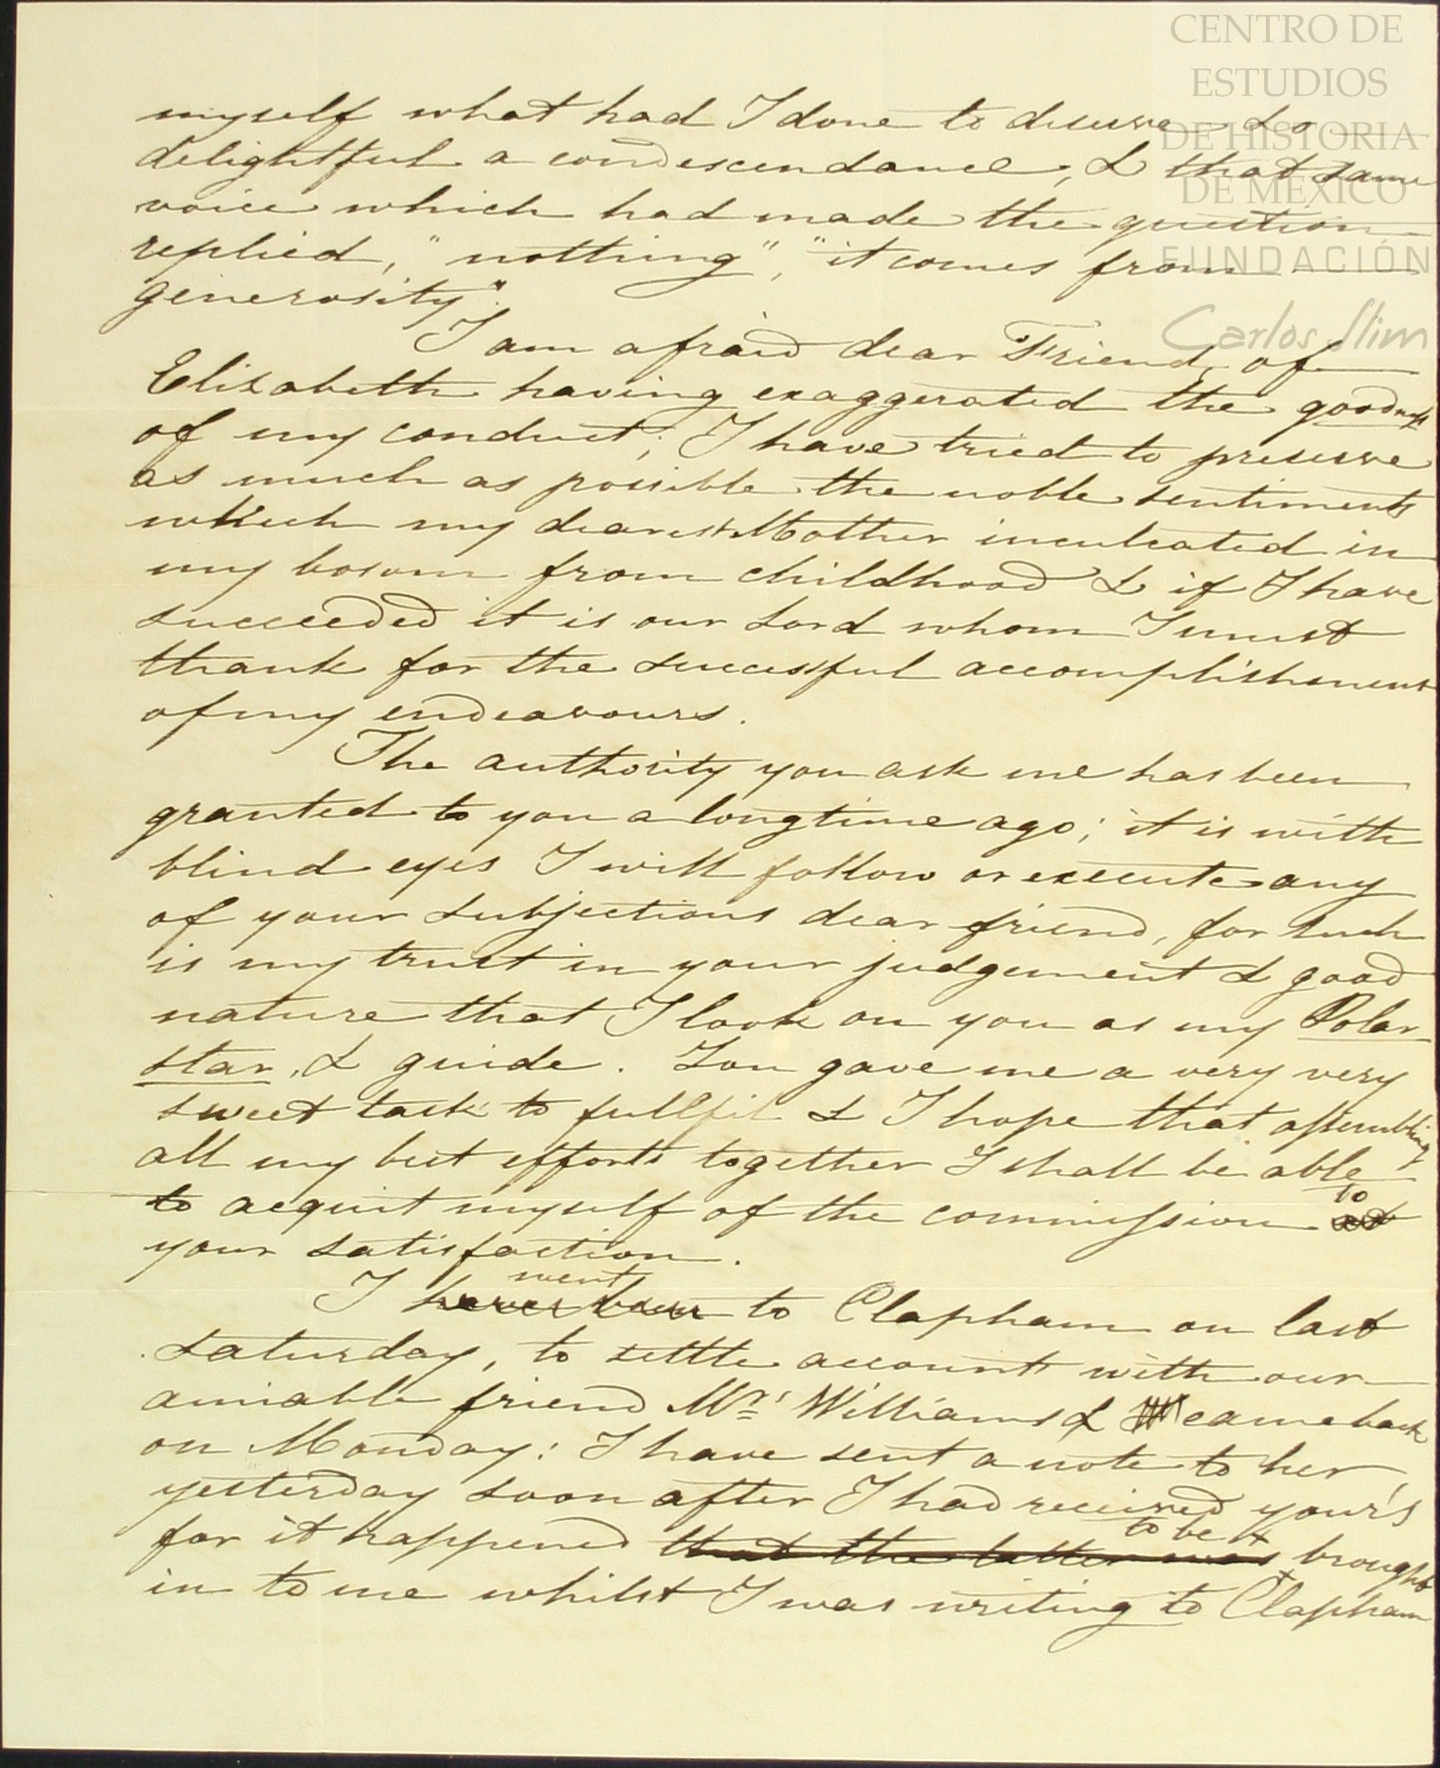 CENTRO DE
ESTUDIOS
DE HISTORIA
DE MÉXICO
FUNDACIÓN
Carlos Slim
myself what had I done to deserve so
delightful a condescendance, & that same
voice which had made the question
replied, "nothing", "it comes from
generosity".
I am afraid dear Friend, of
Elizabeth having exaggerated the goodness
of my conduct; I have tried to preserve
as much as possible the noble sentiments
which my dearest Mother inculcated in
my bosom from childhood & if I have
succeeded it is our Lord whom I must
thank for the successful accomplishment
of my endeavours.
The authority you ask me has been
granted to you a longtime ago; it is with
blind eyes I will follow or execute any
of your subjections dear friend, for such
is my trust in your judgement & good
nature that I look on you as my Polar
star, & guide. You gave me a very very
sweet task to fullfil & I hope that assembling
all my best efforts together I shall be able
to acquit myself of the commission to
your satisfaction.
I went to Clapham on last
Saturday, to settle accounts with our
amiable friend Mrs Williams & came back
on Monday: I have sent a note to her
yesterday soon after I had received your's
for it happened that the latter was to be brought
in to me whilst I was writing to Clapham